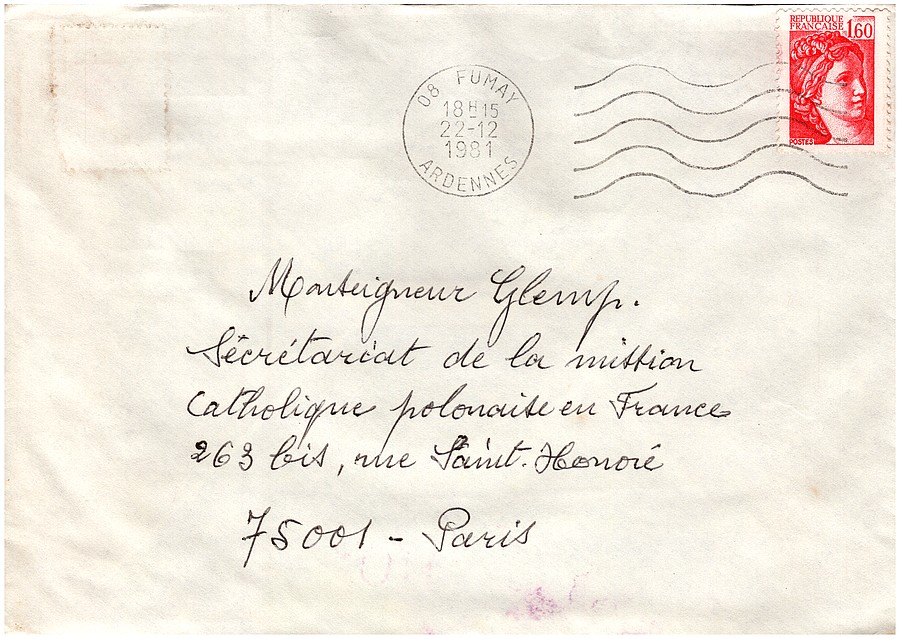 REPUBLIQUE
FRANÇAISE 1,60
POSTES
08 FUMAY
18H15
22-12
1981
ARDENNES
Monseigneur Glemp.
Sécrétariat de la mission
Catholique polonaise en France
263 bis, rue Saint-Honoré
75001 - Paris